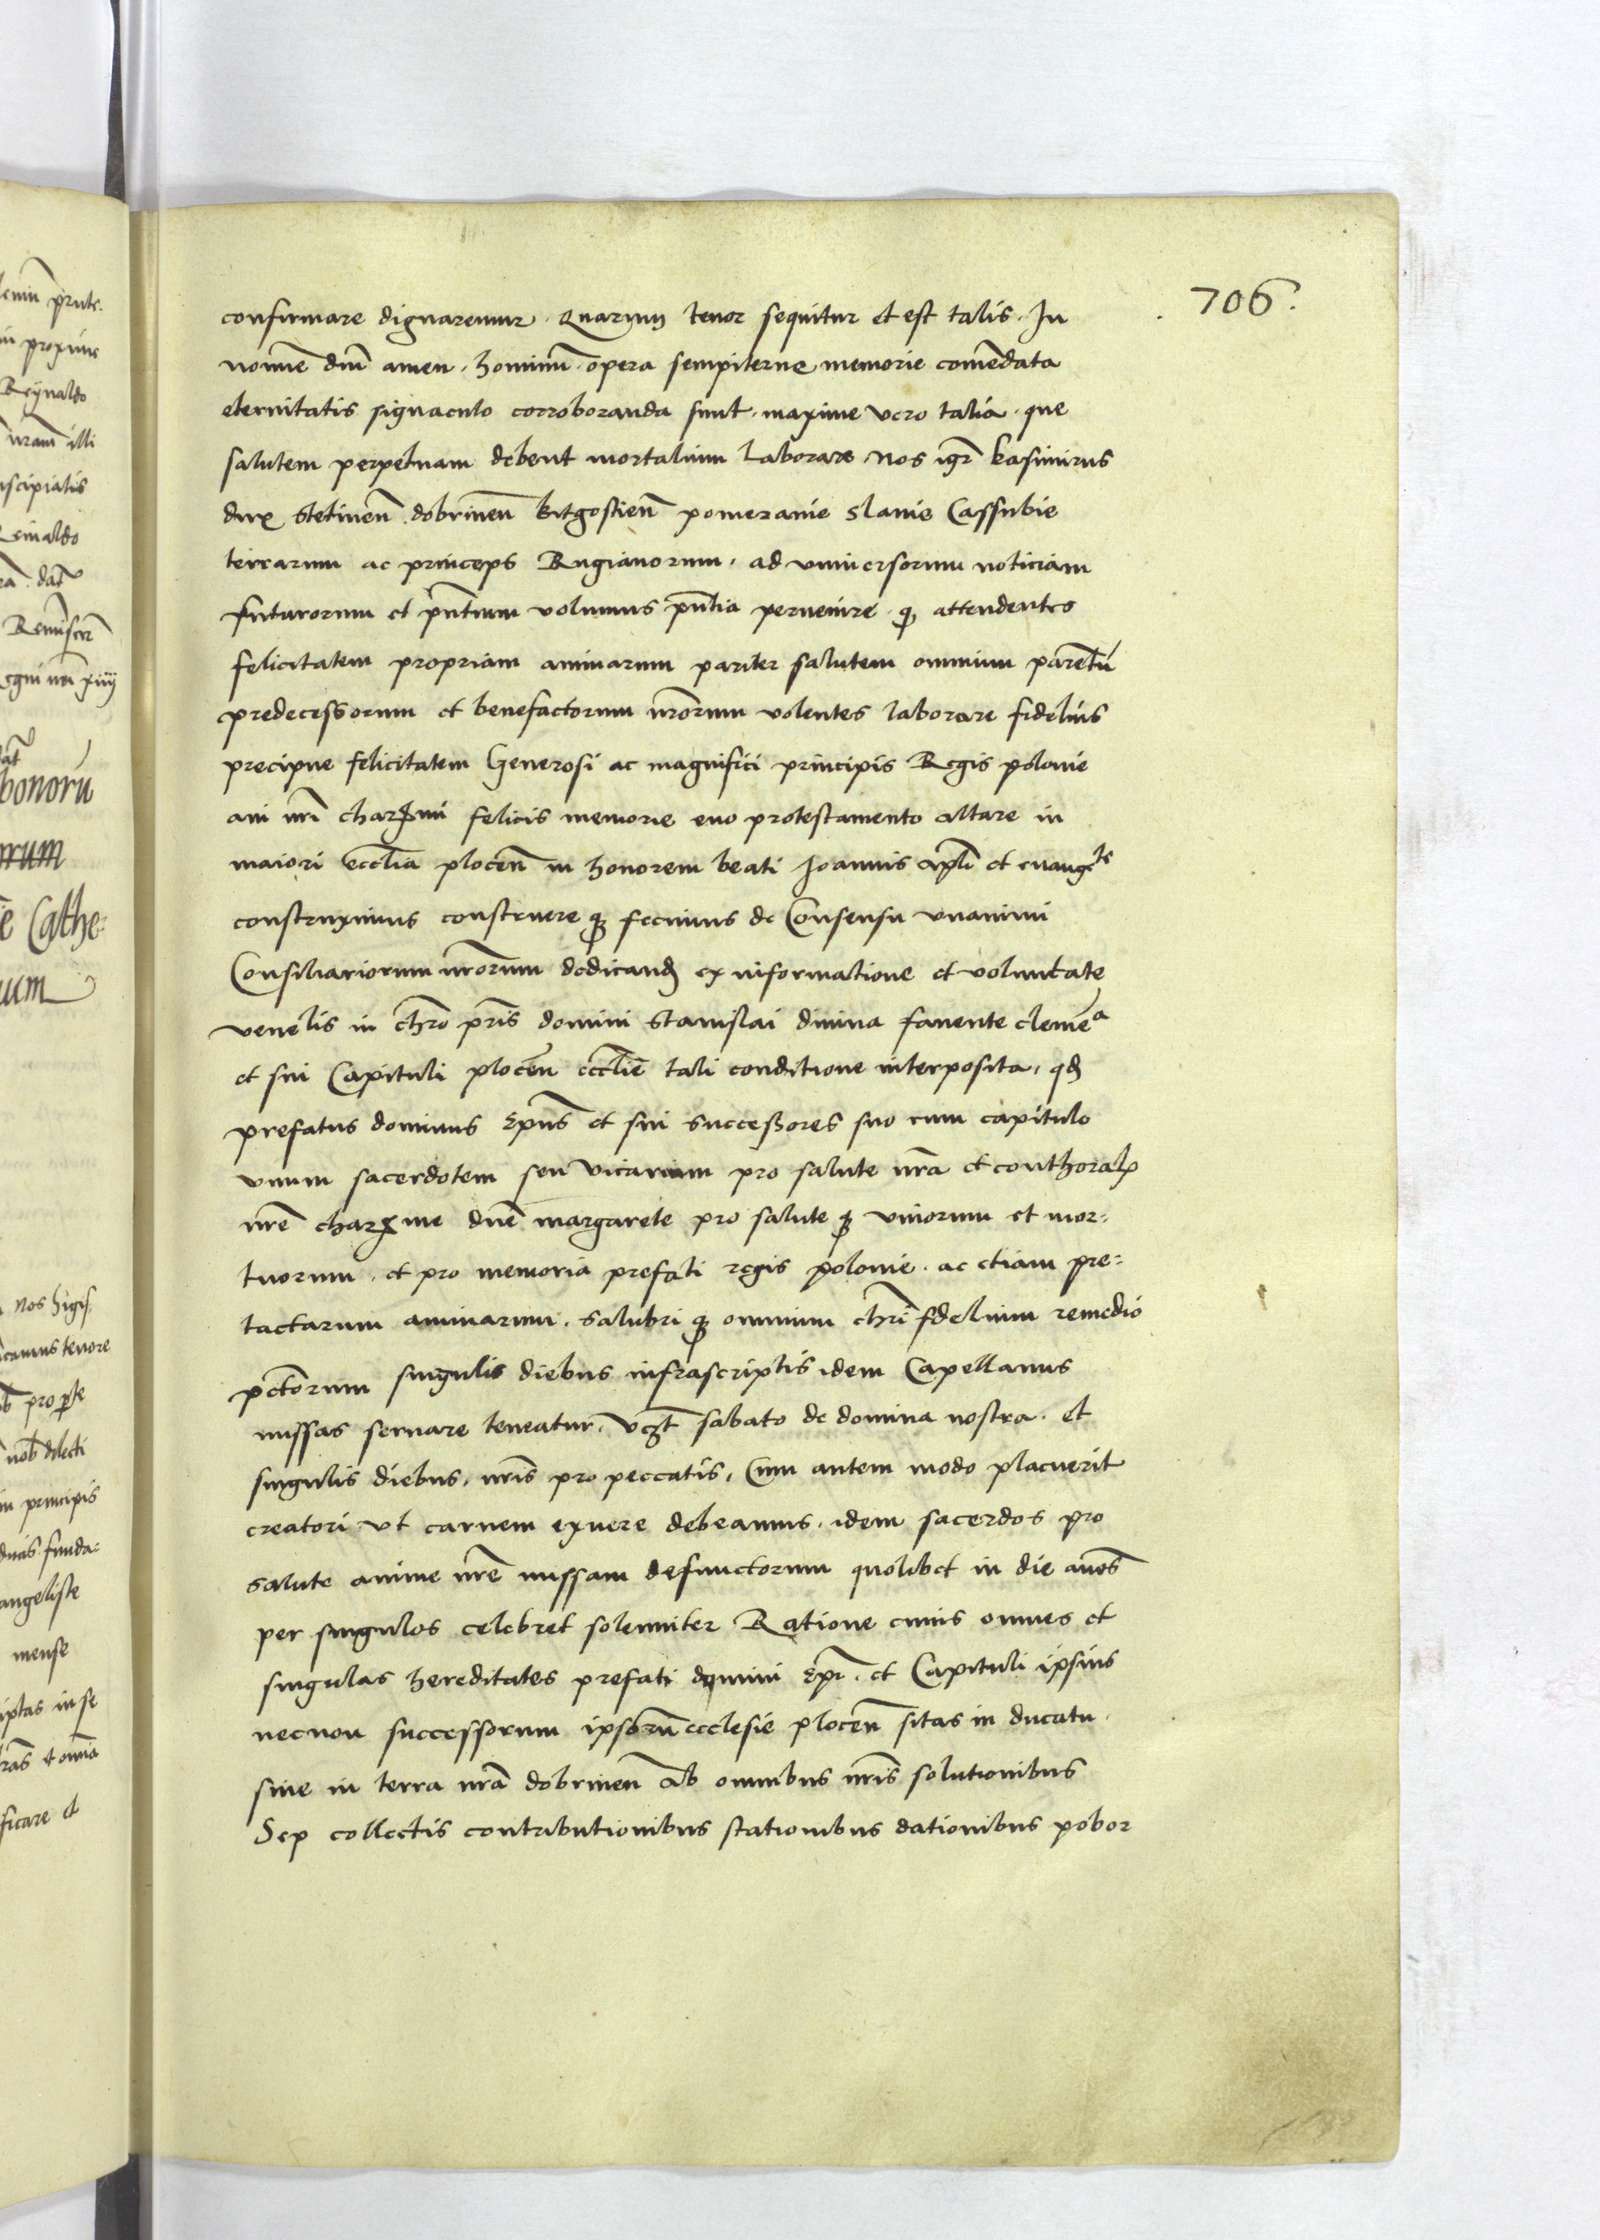 706.
confirmare dignaremur. Quarum tenor sequitur et est talis. In
nomine dni amen. hominum opera sempiterne memorie comendata
eternitatis signaculo corroboranda sunt. maxime vero talia. que
salutem perpetuam debent mortalium laborare Nos igr Kasimirus
dux Stetinen dobrinen bitgostien pomeranie Slavie Cassubie
terrarum ac princeps Rugianorum. ad universorum noticiam
futurorum et pntium volumus pntia pervenire q attendentes
felicitatem propriam animarum pariter salutem omnium parentu
predecessorum et benefactorum nrorum volentes laborare fidelius
precipue felicitatem Generosi ac magnifici principis Regis polonie
avi nri charxmi felicis memorie evo protestamento altare in
maiori ecclia plocen in honorem beati Joannis apli et evangte
construximus construere q fecimus de Consensu unanimi
Consiliariorum nrorum dedicand ex informatione et voluntate
venelis in chro pris domini Stanislai divina favente clemea
et sui Capituli plocen ecclie tali conditione interposita. qd
prefatus dominus Epus et sui successores suo cum capitulo
unum sacerdotem seu vicarium pro salute nra et conthoralis
nre charxme dne margarete pro salute q vivorum et mor=
tuorum. et pro memoria prefati regis polonie. ac etiam pre=
tactarum animarum. salubri q omnium chri fidelium remedio
pctorum singulis diebus infrascriptis idem Capellanus
missas servare teneatur. vczt sabato de domina nostra. et
singulis diebus. nris pro peccatis. Cum autem modo placuerit
creatori ut carnem exuere debeamus. idem sacerdos pro
salute anime nre missam defunctorum quolibet in die annos
per singulos celebret solemniter Ratione cuius omnes et
singulas hereditates prefati domini Epi. et Capituli ipsius
necnon successorum ipsorum ecclesie plocen sitas in ducatu.
sive in terra nra dobrinen Ab omnibus nris solutionibus
Sep collectis contributionibus stationibus dationibus pobor